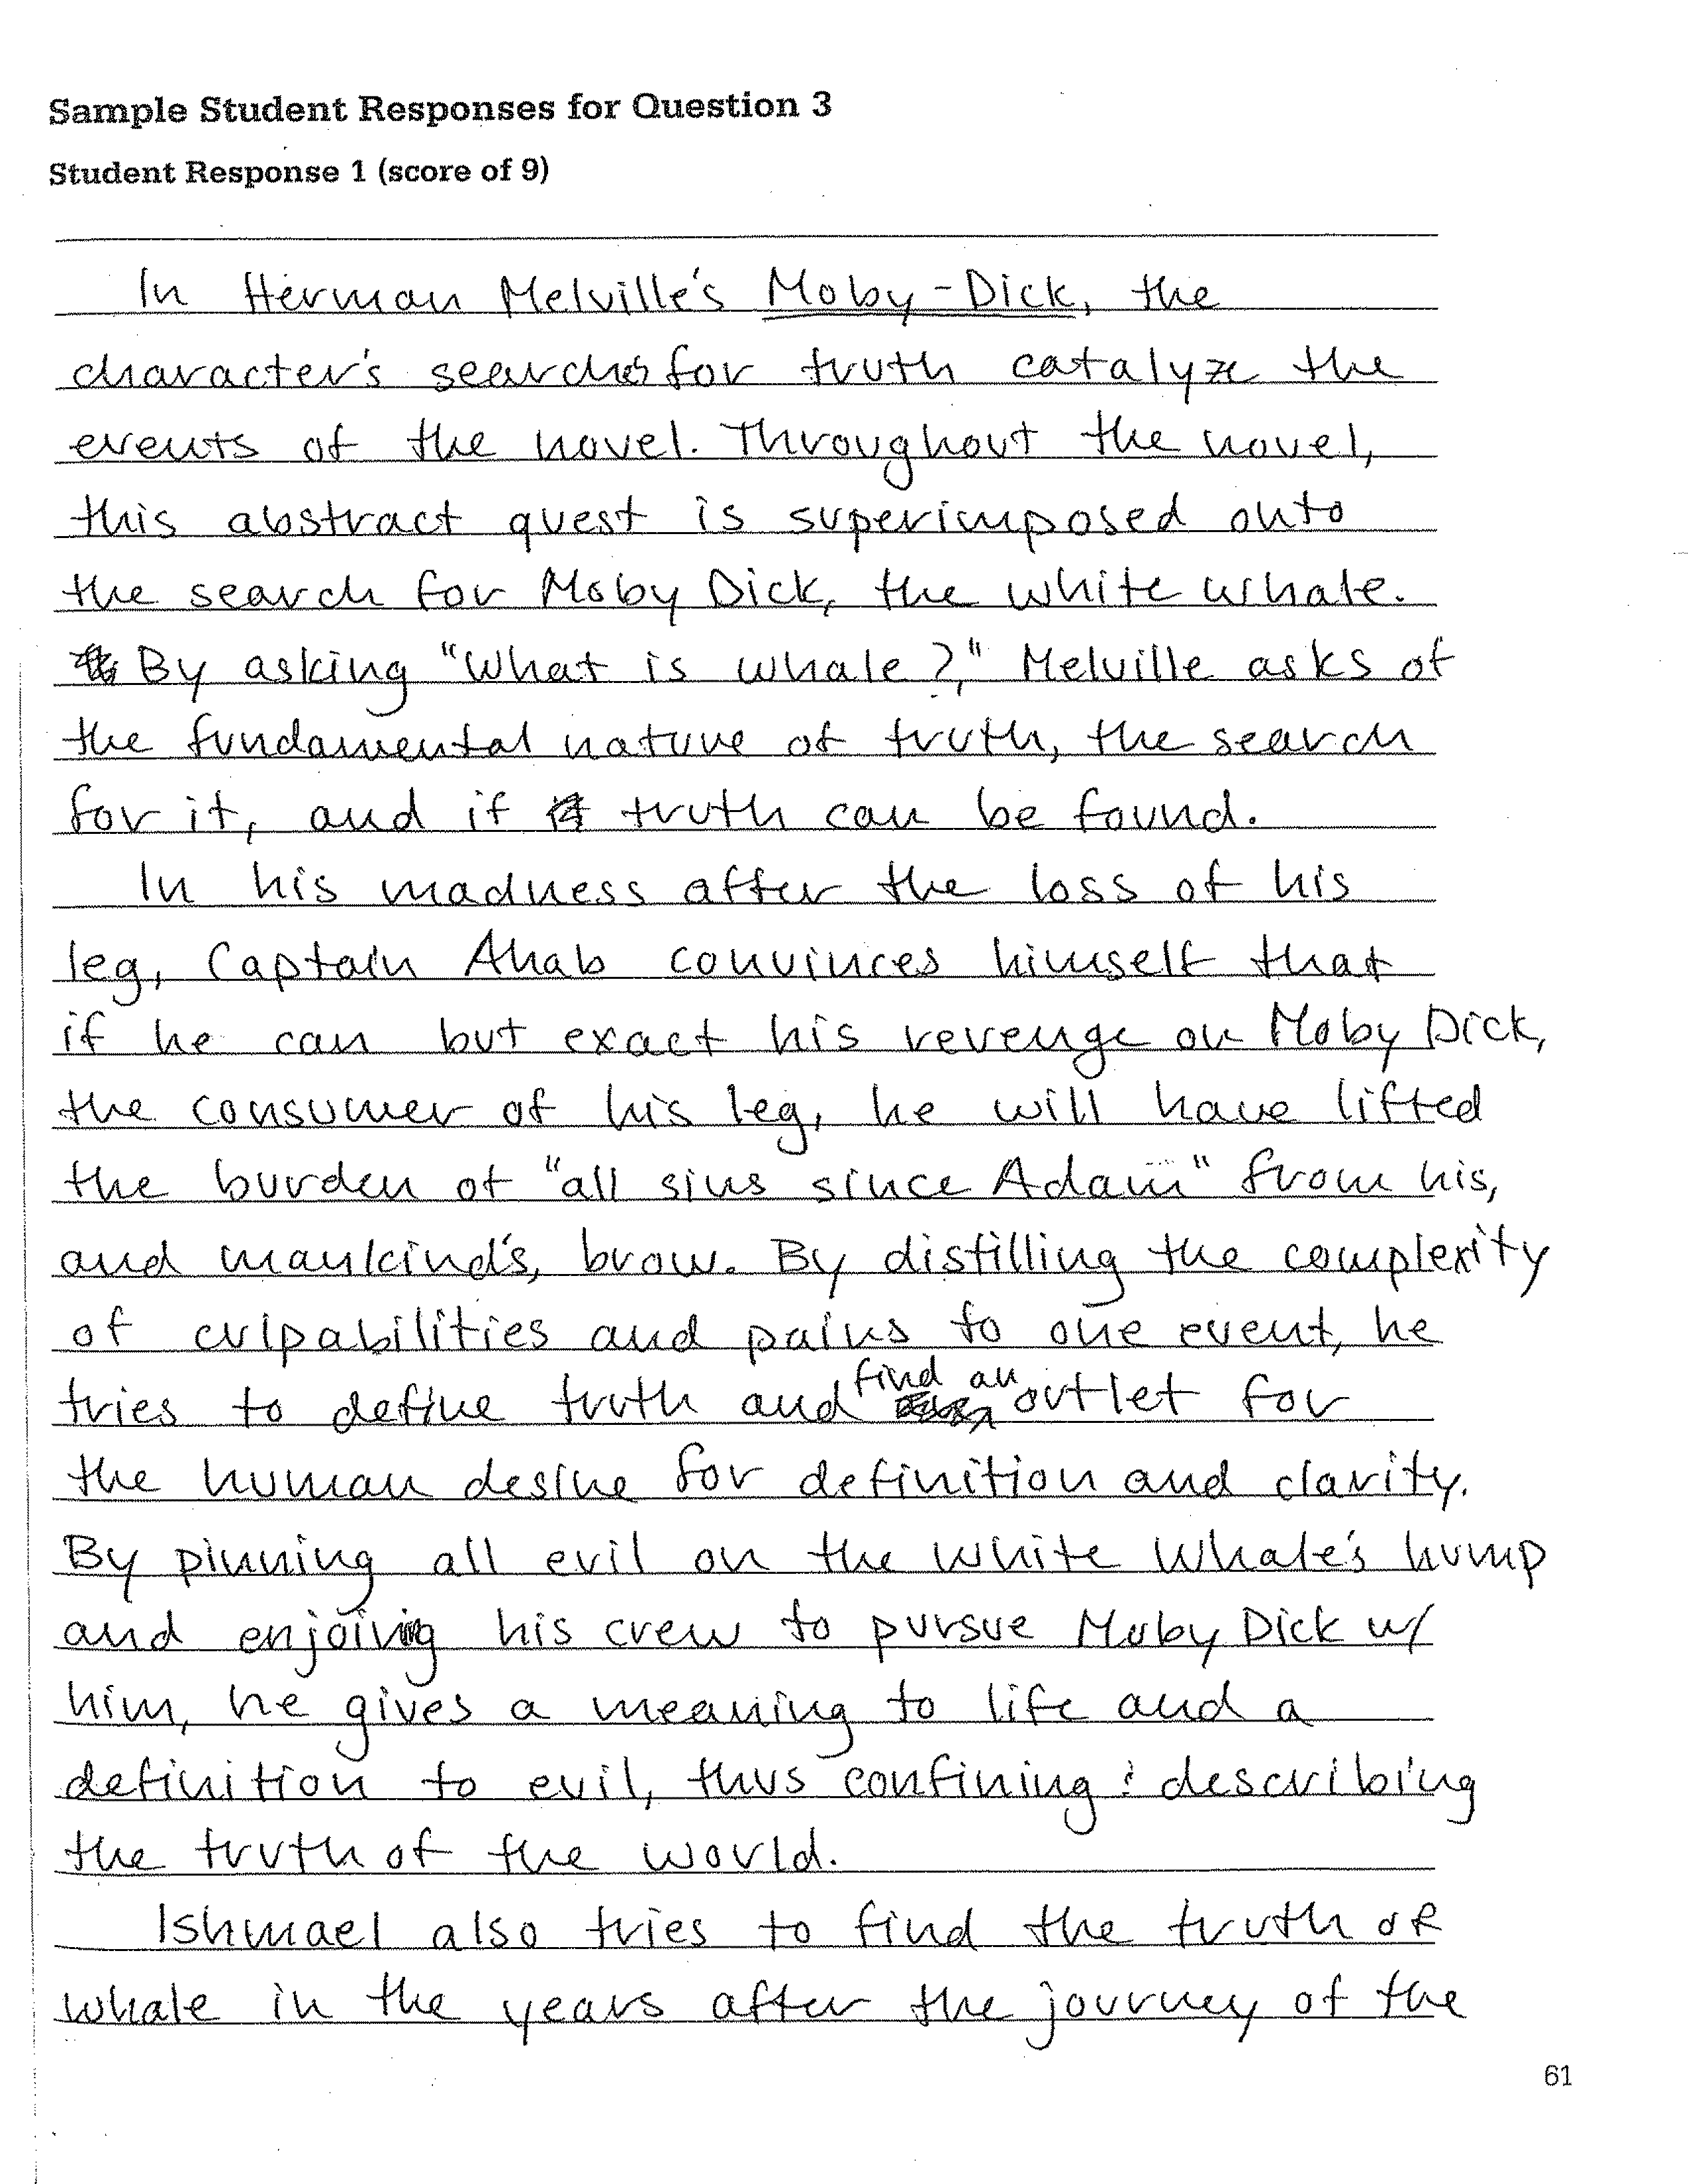 Sample Student Responses for Question 3
Student Response 1 (score of 9)
In Herman Melville's Moby-Dick, the
character's searches for truth catalyze the
events of the novel. Throughout the novel,
this abstract quest is superimposed onto
the search for Moby Dick, the white whale.
By asking "What is whale?," Melville asks of
the fundamental nature of truth, the search
for it, and if truth can be found.
In his madness after the loss of his
leg, Captain Ahab convinces himself that
if he can but exact his revenge on Moby Dick,
the consumer of his leg, he will have lifted
the burden of "all sins since Adam" from his,
and mankind's, brow. By distilling the complexity
of culpabilities and pains to one event, he
tries to define truth and find an outlet for
the human desire for definition and clarity.
By pinning all evil on the White Whale's hump
and enjoing his crew to pursue Moby Dick w/
him, he gives a meaning to life and a
definition to evil, thus confining & describing
the truth of the world.
Ishmael also tries to find the truth of
whale in the years after the journey of the
61